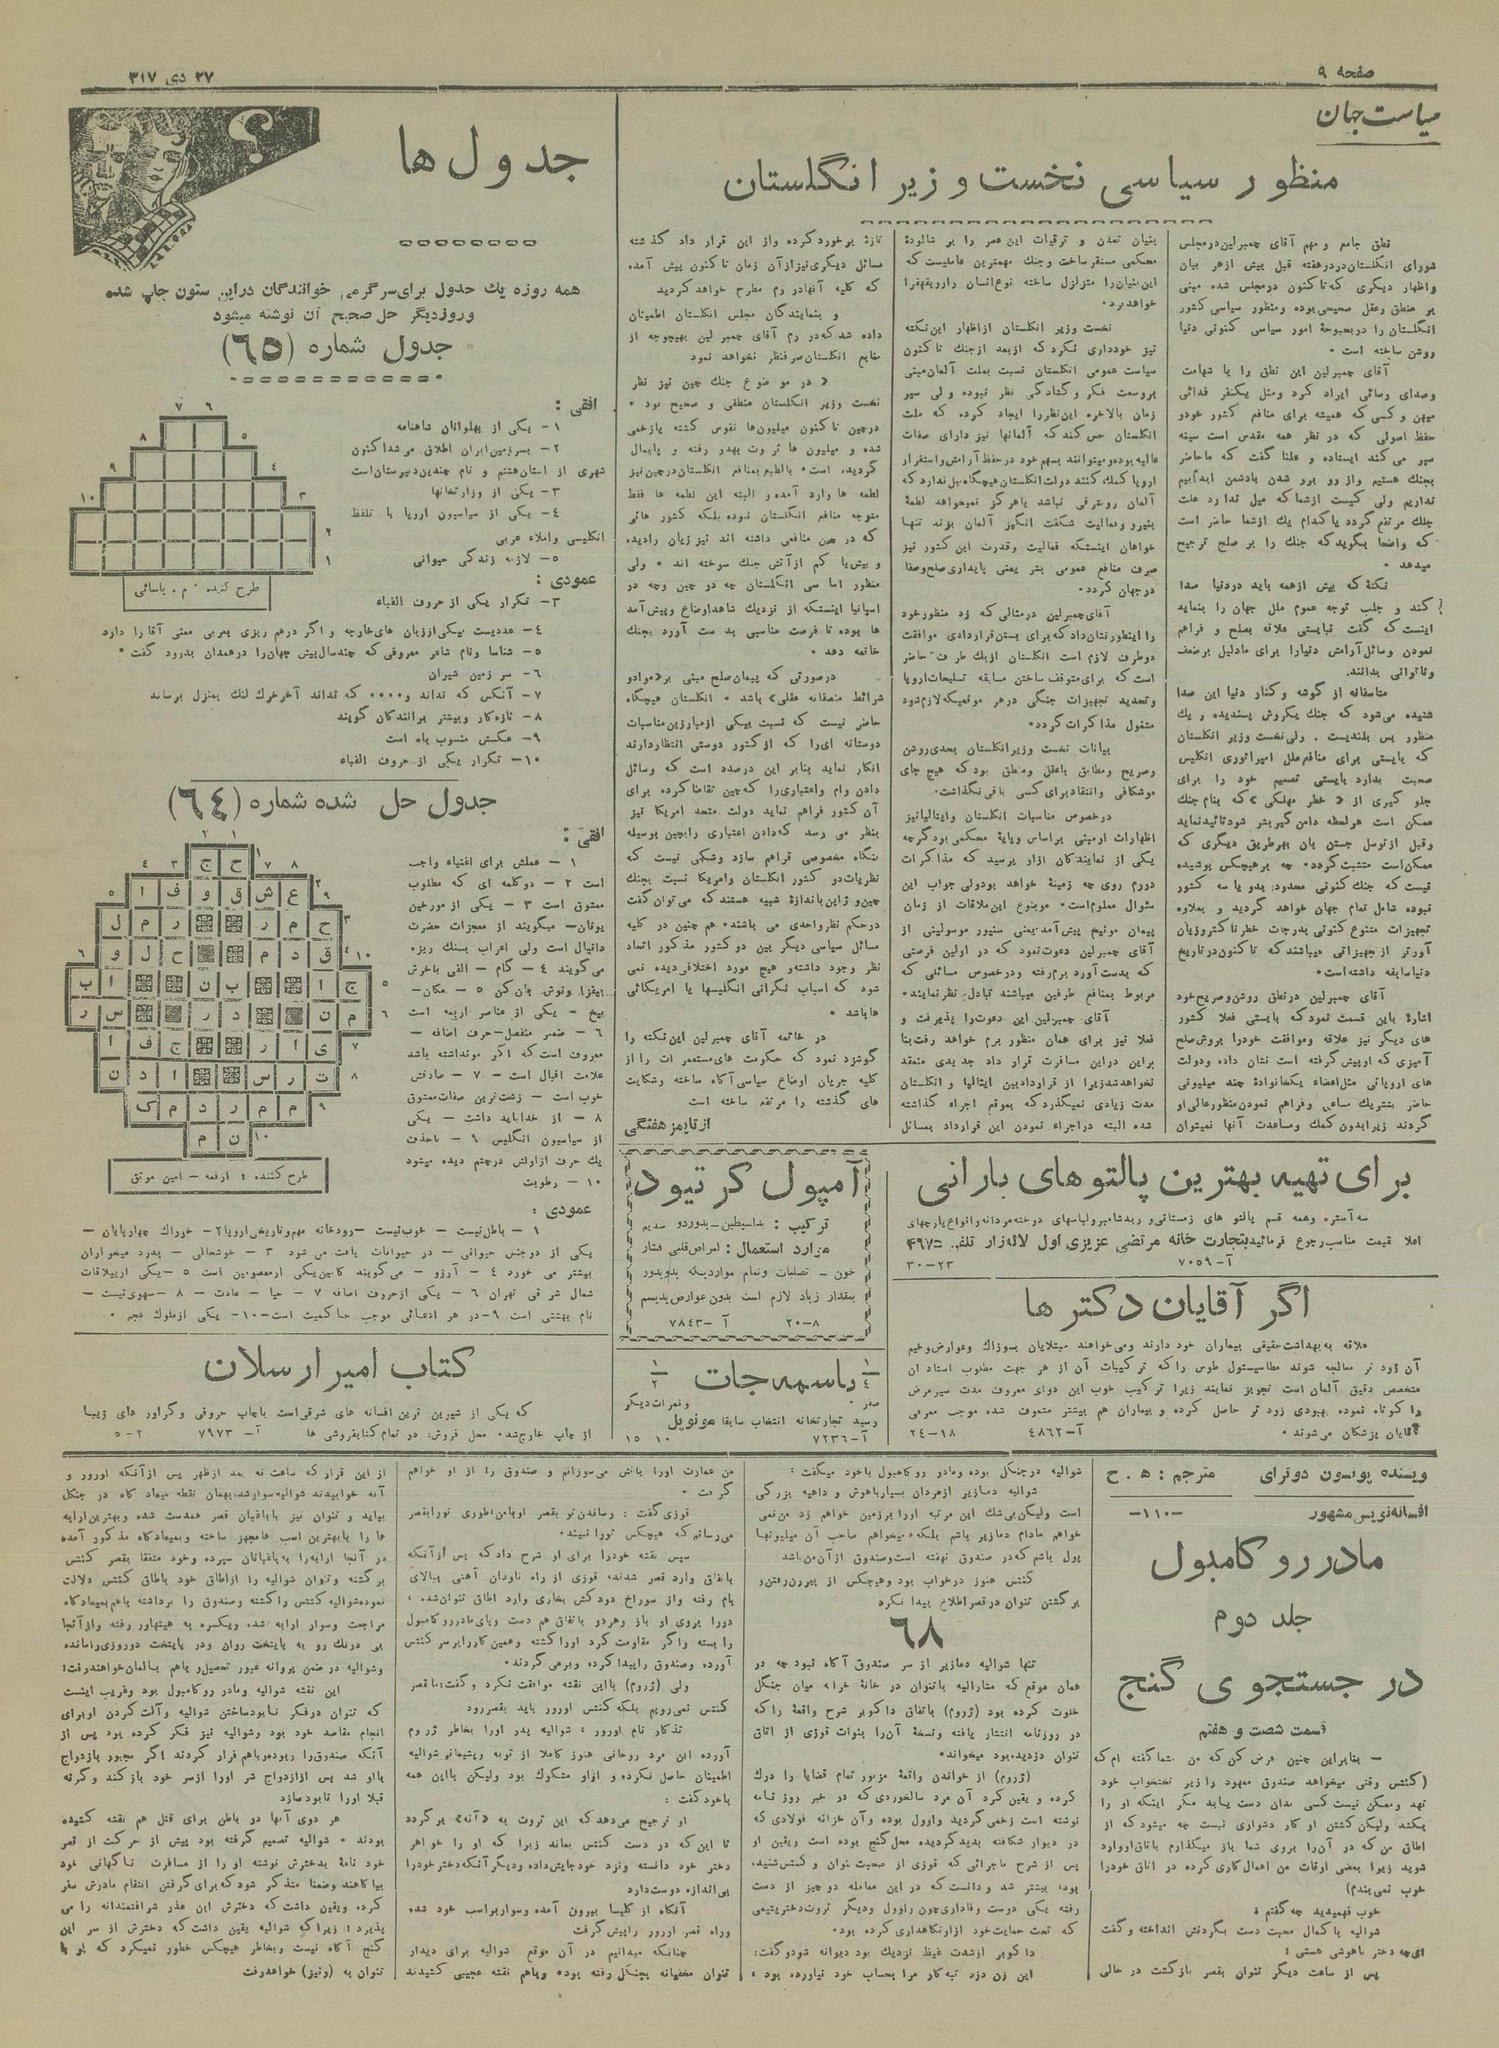 صفحه ۹
۲۷ دی ۳۱۷
سیاست جهان
منظور سیاسی نخست وزیر انگلستان
نطق جامع و مهم آقای چمبرلین در مجلس
شورای انگلستان در دو هفته قبل بیش از هر بیان
و اظهار دیگری که تاکنون در مجلس شده مبنی
بر منطق و عقل صحیحی بوده و منظور سیاسی کشور
انگلستان را در بحبوحهٔ امور سیاسی کنونی دنیا
روشن ساخته است •
آقای چمبرلین این نطق را با شهامت
و صدای رسائی ایراد کرد و مثل یکنفر فدائی
میهن و کسی که همیشه برای منافع کشور خود و
حفظ اصولی که در نظر همه مقدس است سینه
سپر می کند ایستاده و علنا گفت که ما حاضر
بجنك هستیم و از رو برو شدن با دشمن ابدا بیم
نداریم ولی کیست از شما که میل ندارد علت
جنك مرتفع گردد یا کدام یك از شما حاضر است
که واضحا بگوید که جنك را بر صلح ترجیح
میدهد •
نکتهٔ که بیش از همه باید در دنیا صدا
کند و جلب توجه عموم ملل جهان را بنماید
اینست که گفت نبایستی علاقه بصلح و فراهم
نمودن وسائل آرامش دنیا را برای ما دلیل بر ضعف
و ناتوانی بدانند.
متاسفانه از گوشه و کنار دنیا این صدا
شنیده می شود که جنك یکروش پسندیده و یك
منظور بس بلندیست . ولی نخست وزیر انگلستان
که بایستی برای منافع ملل امپراتوری انگلیس
صحبت بدارد بایستی تصمیم خود را برای
جلو گیری از « خطر مهلکی » که بنام جنك
ممکن است هر لحظه دامن گیر بشر شود تائید نماید
و قبل از توسل جستن بان بهر طریق دیگری که
ممکن است متشبث گردد• چه بر هیچکس پوشیده
نیست که جنك کنونی محدود بدو یا سه کشور
نبوده شامل تمام جهان خواهد گردید و بعلاوه
تجهیزات متنوع کنونی بدرجات خطرناکتر و زیان
آورتر از جهیزاتی میباشند که تاکنون در تاریخ
دنیا سابقه داشته است•
آقای چمبرلین در نطق روشن و صریح خود
اشاره باین قسمت نمود که بایستی فعلا کشور
های دیگر نیز علاقه و موافقت خود را بروش صلح
آمیزی که او پیش گرفته است نشان داده و دولت
های اروپائی مثل اعضاء یکخانوادهٔ چند میلیونی
حاضر بتشریك مساعی و فراهم نمودن منظور عالی او
گردند زیرا بدون کمك و مساعدت آنها نمیتوان
بنیان تمدن و ترقیات این عصر را بر شالودهٔ
محکمی مستقر ساخت و جنك مهمترین عاملیست که
این بنیان را متزلزل ساخته نوع انسان را رو بقهقرا
خواهد برد•
نخست وزیر انگلستان از اظهار این نکته
نیز خودداری نکرد که از بعد از جنك تاکنون
سیاست عمومی انگلستان نسبت بملت آلمان مبنی
بر وسعت فکر و گشادگی نظر نبوده ولی سیر
زمان بالاخره این نظر را ایجاد کرده که ملت
انگلستان حس کند که آلمانها نیز دارای صفات
عالیه بوده و میتوانند بسهم خود در حفظ آرامش و استقرار
اروپا کمك کنند دولت انگلستان هیچگاه میل ندارد که
آلمان رو بترقی نباشد یا هرگز نمیخواهد لطمهٔ
بنیرو و فعالیت شگفت انگیز آلمان بزند تنها
خواهان اینستکه فعالیت و قدرت این کشور نیز
صرف منافع عمومی بشر یعنی پایداری صلح و صفا
در جهان گردد•
آقای چمبرلین در مثالی که زد منظور خود
را اینطور نشان داد که برای بستن قراردادی موافقت
دو طرف لازم است انگلستان از یك طرف حاضر
است که برای متوقف ساختن مسابقه تسلیحات اروپا
و تحدید تجهیزات جنگی در هر موقعیکه لازم شود
مشغول مذاکرات گردد•
بیانات نخست وزیر انگلستان بحدی روشن
و صریح و مطابق با عقل و منطق بود که هیچ جای
موشکافی و انتقاد برای کسی باقی نگذاشت•
در خصوص مناسبات انگلستان و ایتالیا نیز
اظهارات او مبنی بر اساس و پایهٔ محکمی بود گرچه
یکی از نمایندگان از او پرسید که مذاکرات
در رم روی چه زمینهٔ خواهد بود ولی جواب این
سئوال معلوم است• موضوع این ملاقات از زمان
پیمان مونیخ پیش آمد یعنی سنیور موسولینی از
آقای چمبرلین دعوت نمود که در اولین فرصتی
که بدست آورد برم رفته و در خصوص مسائلی که
مربوط بمنافع طرفین میباشند تبادل نظر نمایند•
آقای چمبرلین این دعوت را پذیرفت و
فعلا نیز برای همان منظور برم خواهد رفت بنا
براین در این مسافرت قرار داد جدیدی منعقد
نخواهد شد زیرا از قرارداد بین ایتالیا و انگلستان
مدت زیادی نمیگذرد که بموقع اجراء گذاشته
شده البته در اجراء نمودن این قرارداد بمسائل
تازهٔ برخورد کرده و از این قرار داد گذشته
مسائل دیگری نیز از آن زمان تا کنون پیش آمده
که کلیه آنها در رم مطرح خواهد گردید
و بنمایندگان مجلس انگلستان اطمینان
داده شد که در رم آقای چمبرلین بهیچوجه از
منافع انگلستان صرفنظر نخواهد نمود
« در موضوع جنك چین نیز نظر
نخست وزیر انگلستان منطقی و صحیح بود •
در چین تاکنون میلیون ها نفوس کشته یا زخمی
شده و میلیون ها ثروت بهدر رفته و پایمال
گردیده است• بالطبع بمنافع انگلستان در چین نیز
لطمه ها وارد آمده و البته این لطمه ها فقط
متوجه منافع انگلستان نبوده بلکه کشور هائی
که در چین منافعی داشته اند نیز زیان رادیده
و بیش یا کم از آتش جنك سوخته اند • ولی
منظور اساسی انگلستان چه در چین و چه در
اسپانیا اینستکه از نزدیك شاهد اوضاع و پیش آمد
ها بوده تا فرصت مناسبی بدست آورد بجنك
خاتمه دهد •
در صورتی که پیمان صلح مبنی بر «مواد و
شرائط منصفانه عقلی» باشد • انگلستان هیچگاه
حاضر نیست که نسبت بیکی از مبارزین مناسبات
دوستانه ای را که از کشور دوستی انتظار دارند
انکار نماید بنابر این درصدد است که وسائل
دادن وام و اعتباری را که چین تقاضا کرده برای
آن کشور فراهم نماید دولت متحد امریکا نیز
بنظر می رسد که دادن اعتباری را بچین بوسیله
بنگاه مخصوصی فراهم سازد و شکی نیست که
نظریات دو کشور انگلستان و امریکا نسبت بجنك
چین و ژاپن باندازهٔ شبیه هستند که می توان گفت
در حکم نظر واحدی می باشند• هم چنین در کلیه
مسائل سیاسی دیگر بین دو کشور مذکور اتحاد
نظر وجود داشته و هیچ مورد اختلافی دیده نمی
شود که اسباب نگرانی انگلیسها یا امریکائی
ها باشد •
در خاتمه آقای چمبرلین این نکته را
گوشزد نمود که حکومت های مستعمرات را از
کلیه جریان اوضاع سیاسی آگاه ساخته و شکایت
های گذشته را مرتفع ساخته است
از تایمز هفتگی
جدول ها
؟
همه روزه یك جدول برای سرگرمی خوانندگان در این ستون چاپ شده
و روز دیگر حل صحیح آن نوشته میشود
جدول شماره (۶۵)
۷ ۶
۸ ۵
۹ ۴
۱۰ ۳
۲
۱
طرح کننده • م . یاسائی
افقی :
۱- یکی از پهلوانان شاهنامه
۲- بسرزمین ایران اطلاق می شد اکنون
شهری از استان هشتم و نام چندین دبیرستان است
۳- یکی از وزارتخانها
۴- یکی از سیاسیون اروپا با تلفظ
انگلیسی و املاء عربی
۵- لازمه زندگی حیوانی
عمودی :
۳- تکرار یکی از حروف الفباء
۴- عددیست بیکی از زبان های خارجه و اگر درهم ریزی بعربی معنی آقا را دارد
۵- شناسا و نام شاعر معروفی که چند سال پیش جهان را در همدان بدرود گفت •
۶- سر زمین شیران
۷- آنکس که نداند و ۰۰۰۰ که نداند آخر خرك لنك بمنزل برساند
۸- تازه کار و بیشتر برانندگان گویند
۹- عکسش منسوب بماه است
۱۰- تکرار یکی از حروف الفباء
جدول حل شده شماره (۶۴)
طرح کننده : ارفعه - امین موثق
افقی :
۱ - عملش برای اغنیاء واجب
است ۲ - دو کلمه ای که مطلوب
معشوق است ۳ - یکی از مورخین
یونان- میگویند از معجزات حضرت
دانیال است ولی اعراب بسنك ریزه
می گویند ۴ - گام - الفی باخرش
بیفزا و نوش جان کن ۵ - مکان-
بیخ - یکی از عناصر اربعه است
۶ - ضمیر منفصل - حرف اضافه -
معروف است که اگر مو نداشته باشد
علامت اقبال است - ۷ - صادقش
خوب است - زشت ترین صفات معشوق
۸ - از خدا باید داشت - یکی
از سیاسیون انگلیس ۹ - با حذف
یك حرف از اولش در چشم دیده میشود
۱۰ - رطوبت
عمودی :
۱ - باطل نیست - خوب نیست - رودخانه مهم و تاریخی اروپا ۲- خوراك چهارپایان -
یکی از دو جنس حیوانی - در حیوانات یافت می شود ۳ - خوشحالی - بدرد میخواران
بیشتر می خورد ۴ - آرزو - می گویند کابین یکی از معصومین است ۵ - یکی از ییلاقات
شمال شرقی تهران ۶ - یکی از حروف اضافه ۷ - حیا - عادت - ۸ - سهوی نیست -
نام بهشتی است ۹- در هر ادعائی موجب حاکمیت است - ۱۰- یکی از ملوك عجم •
برای تهیه بهترین پالتوهای بارانی
سه آستره و همه قسم پالتو های زمستانی و ربدشامبر و لباسهای دوخته مردانه و انواع پارچهای
اعلا قیمت مناسب رجوع فرمائید بتجارت خانه مرتضی عزیزی اول لاله زار تلفن ۴۹۷۵
آ-۷۰۵۹ ۲۳-۳۰
اگر آقایان دکتر ها
علاقه به بهداشت حقیقی بیماران خود دارند و می خواهند مبتلایان بسوزاك و عوارض وخیم
آن زودتر معالجه شوند مطامیستول طوس را که ترکیبات آن از هر جهت مطلوب استادان
متخصص دقیق آلمان است تجویز نمایند زیرا ترکیب خوب این دوای معروف مدت سیر مرض
را کوتاه نموده بهبودی زود تر حاصل کرده و بیماران هم بیشتر مشعوف شده موجب معرفی
آقایان پزشکان می شوند •
آ-۴۸۶۲ ۱۸-۲۴
آمپول کرتیود
ترکیب : بداسیطین - یدوردو سدیم
موارد استعمال : امراض قلبی فشار
خون - تصلبات و تمام مواردیکه یدویدور
بمقدار زیاد لازم است بدون عوارض یدیسم
۸-۲۰ آ-۷۸۴۳
باسمه جات ۱/۴ ۱/۲
صفر • و نمرات دیگر
رسید تجارتخانه انتخاب سابقا مونوپل
آ-۷۲۳۶ ۱۰-۱۵
کتاب امیر ارسلان
که یکی از شیرین ترین افسانه های شرقی است با چاپ حروفی و گراور های زیبا
از چاپ خارج شد• محل فروش: در تمام کتابفروشی ها آ-۷۹۷۳ ۲-۵
ویسنده پونسون دوترای
مترجم : ه . ح
افسانه نویس مشهور
-۱۱۰-
مادر روکامبول
جلد دوم
در جستجوی گنج
قسمت شصت و هفتم
- بنابراین چنین فرض کن که من بشما گفته ام که
(کنتس وقتی میخواهد صندوق معهود را زیر تختخواب خود
نهد و ممکن نیست کسی بدان دست یابد مگر اینکه او را
بکشد ولیکن کشتن او کار دشواری نیست چه میشود که از
اطاق من که در آن را بروی شما باز میگذارم باتاق او وارد
شوید زیرا بعضی اوقات من اهمال کاری کرده در اتاق خود را
خوب نمی بندم)
خوب فهمیدید چه گفتم ؟
شوالیه با کمال محبت دست بگردنش انداخته و گفت
ای چه دختر باهوشی هستی !
پس از ساعت دیگر تنوان بقصر بازگشت در حالی
شوالیه در جنگل بوده و مادر روکامبول با خود میگفت :
شوالیه دمازیر از مردان بسیار باهوش و داهیه بزرگی
است ولیکن بی شك این مرتبه او را بر زمین خواهم زد من نمی
خواهم مادام دمازیر باشم بلکه• میخواهم صاحب آن میلیونها
پول باشم که در صندوق نهفته است و صندوق از آن من باشد
کنتس هنوز در خواب بود و هیچکس از بیرون رفتن و
برگشتن تنوان در قصر اطلاع پیدا نکرد
۶۸
تنها شوالیه دمازیر از سر صندوق آگاه نبود چه در
همان موقع که مشارالیه با تنوان در خانهٔ خرابه میان جنگل
خلوت کرده بود (ژروم) باتفاق داکوبر شرح واقعهٔ را که
در روزنامه انتشار یافته و نسخهٔ آن را بنوات قوزی از اتاق
تنوان دزدیده بود میخواند•
(ژروم) از خواندن واقعهٔ مزبور تمام قضایا را درك
کرده و یقین کرد آن مرد سالخوردی که در خبر روز نامه
نوشته است زخمی گردید و اوول بوده و آن خزانه فولادی که
در دیوار شکافته پدید گردیده محل گنج بوده است و یقین او
پس از شرح ماجرائی که قوزی از صحبت تنوان و کنتس شنیده
بود، بیشتر شد و دانست که در این معامله دو چیز از دست
رفته یکی دوست وفاداری چون راوول و دیگر ثروت دختر یتیمی
که تحت حمایت خود از او نگاهداری کرده بود•
داکوبر از شدت غیظ نزدیك بود دیوانه شود و گفت:
این زن دزد تبه کار مرا بحساب خود نیاورده بود •
من عمارت او را باتش می سوزانم و صندوق را از او خواهم
گرفت •
قوزی گفت : رساندن تو بقصر او با من • طوری تو را بقصر
می رسانم که هیچکس تو را نبیند•
سپس نقشه خود را برای او شرح داد که پس از آنکه
باتفاق وارد قصر شدند، قوزی از راه ناودان آهنی ببالای
بام رفته و از سوراخ دودکش بخاری وارد اطاق تنوان شده ،
در را بروی او باز و هر دو باتفاق هم دست و پای مادر روکامبول
را بسته و اگر مقاومت کرد او را کشته و همین کار را بر سر کنتس
آورده و صندوق را پیدا کرده و بر می گردند•
ولی (ژروم) با این نقشه موافقت نکرد و گفت: ما بقصر
کنتس نمی رویم بلکه کنتس اورور باید بقصر رود
تذکار نام اورور ، شوالیه پدر او را بخاطر ژروم
آورده این مرد روحانی هنوز کاملا از توبه و پشیمانی شوالیه
اطمینان حاصل نکرده و از او مشکوك بود ولیکن با این همه
با خود گفت :
او ترجیح می دهد که این ثروت به «آنه» برگردد
تا این که در دست کنتس بماند زیرا که او را خواهر
دختر خود دانسته و نزد خود جایش داده و دیگر آنکه دختر خود را
بی اندازه دوست دارد
آنگاه از کلیسا بیرون آمده و سوار بر اسب خود شده
و راه قصر اورور را پیش گرفت
چنانکه میدانیم در آن موقع شوالیه برای دیدار
تنوان مخفیانه بجنگل رفته بود• و باهم نقشه عجیبی کشیدند
از این قرار که ساعت نه بعد از ظهر پس از آنکه اورور و
آنه خوابیدند شوالیه سوار شده بهمان نقطه میعاد گاه در جنگل
بیاید و تنوان نیز با باغبان قصر همدست شده و بهترین ارابه
ها را با بهترین اسب ها مجهز ساخته و بمیعادگاه مذکور آمده
در آنجا ارابه را به باغبان سپرده و خود متفقا بقصر کنتس
برگشته و تنوان شوالیه را از اطاق خود باطاق کنتس دلالت
نموده شوالیه کنتس را کشته و صندوق را برداشته باهم بمیعادگاه
مراجعت و سوار ارابه شده و یکسره به هیتهاور رفته و از آنجا
بی درنك رو به پایتخت روان و در پایتخت دو روزی را مانده
و شوالیه در ضمن پروانه عبور تحصیل و باهم بالمان خواهند رفت؛
این نقشه شوالیه و مادر روکامبول بود و غریب اینست
که تنوان در فکر نابود ساختن شوالیه و آلت کردن او برای
انجام مقاصد خود بود و شوالیه نیز فکر کرده بود پس از
آنکه صندوق را ربوده و باهم فرار کردند اگر مجبور بازدواج
با او شد پس از ازدواج شر او را از سر خود باز کند و گرنه
قبلا او را نابود سازد
هر دوی آنها در باطن برای قتل هم نقشه کشیده
بودند • شوالیه تصمیم گرفته بود پیش از حرکت از قصر
خود نامهٔ بدخترش نوشته او را از مسافرت ناگهانی خود
بیا گاهند و ضمنا متذکر شود که برای گرفتن انتقام مادرش سفر
کرده و یقین داشت که دخترش این عذر شرافتمندانه را می
پذیرد ؛ زیرا که شوالیه یقین داشت که دخترش از سر این
گنج آگاه نیست و بخاطر هیچکس خطور نمیکرد که او با
تنوان به (ونیز) خواهد رفت